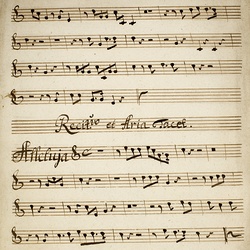 Recit: et Aria Tacet.
Alleluja